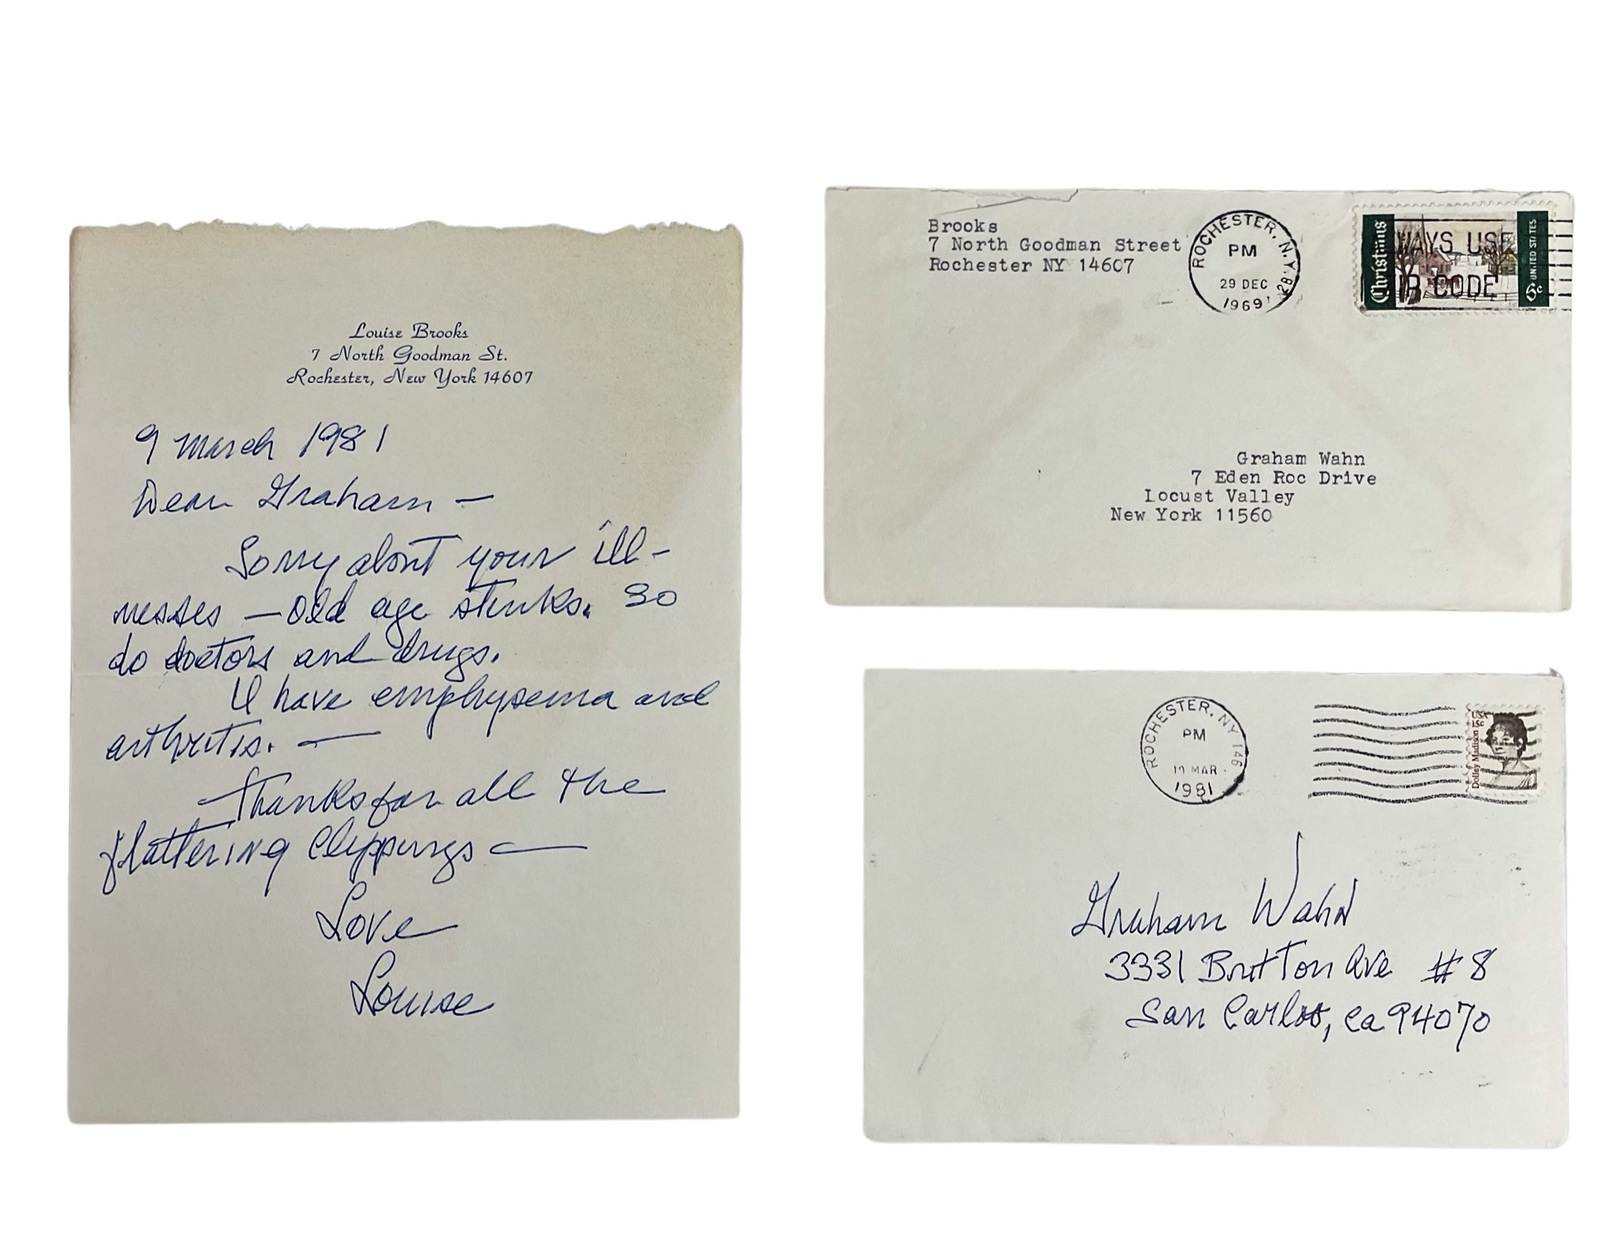 Louise Brooks
7 North Goodman St.
Rochester, New York 14607
9 March 1981
Dear Graham —
Sorry about your ill-
nesses — old age stinks. So
do doctors and drugs.
I have emphysema and
arthritis. —
Thanks for all the
flattering clippings —
Love
Louise
Brooks
7 North Goodman Street
Rochester NY 14607
ROCHESTER, N.Y.
PM
29 DEC
1969
Christmas
WAYS USE
IP CODE
UNITED STATES
6c
Graham Wahn
7 Eden Roc Drive
Locust Valley
New York 11560
ROCHESTER, NY 146
PM
MAR
1981
USA
15c
Dolley Madison
Graham Wahn
3331 Britton Ave #8
San Carlos, Ca 94070